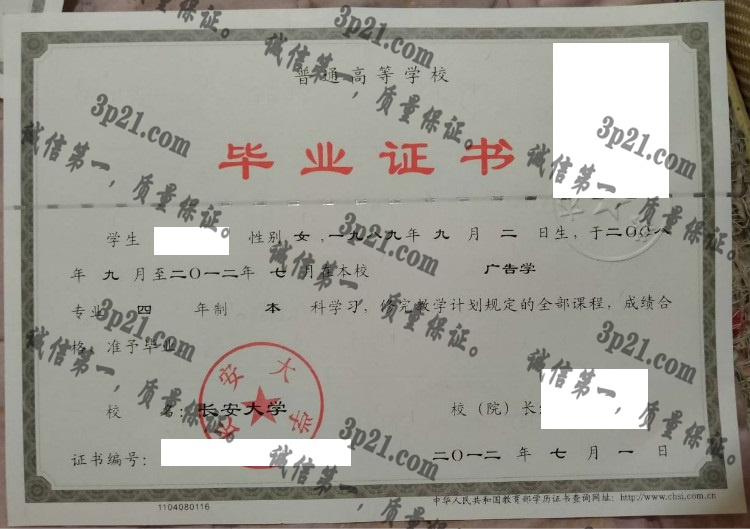 普通高等学校
毕业证书
学生 性别 女，一九八九年 九 月 二 日生，于二〇〇八
年 九 月至二〇一二年 七 月在本校 广告学
专业 四 年制 本 科学习，修完教学计划规定的全部课程，成绩合
格，准予毕业
长安大学
校 名：长安大学 校（院）长：
证书编号： 二〇一二 年 七 月 一 日
1104080116
中华人民共和国教育部学历证书查询网址：http://www.chsi.com.cn
3p21.com
诚信第一，质量保证。
3p21.com
诚信第一，质量保证。
3p21.com
诚信第一，质量保证。
3p21.com
诚信第一，质量保证。
3p21.com
诚信第一，质量保证。
3p21.com
诚信第一，质量保证。
3p21.com
诚信第一，质量保证。